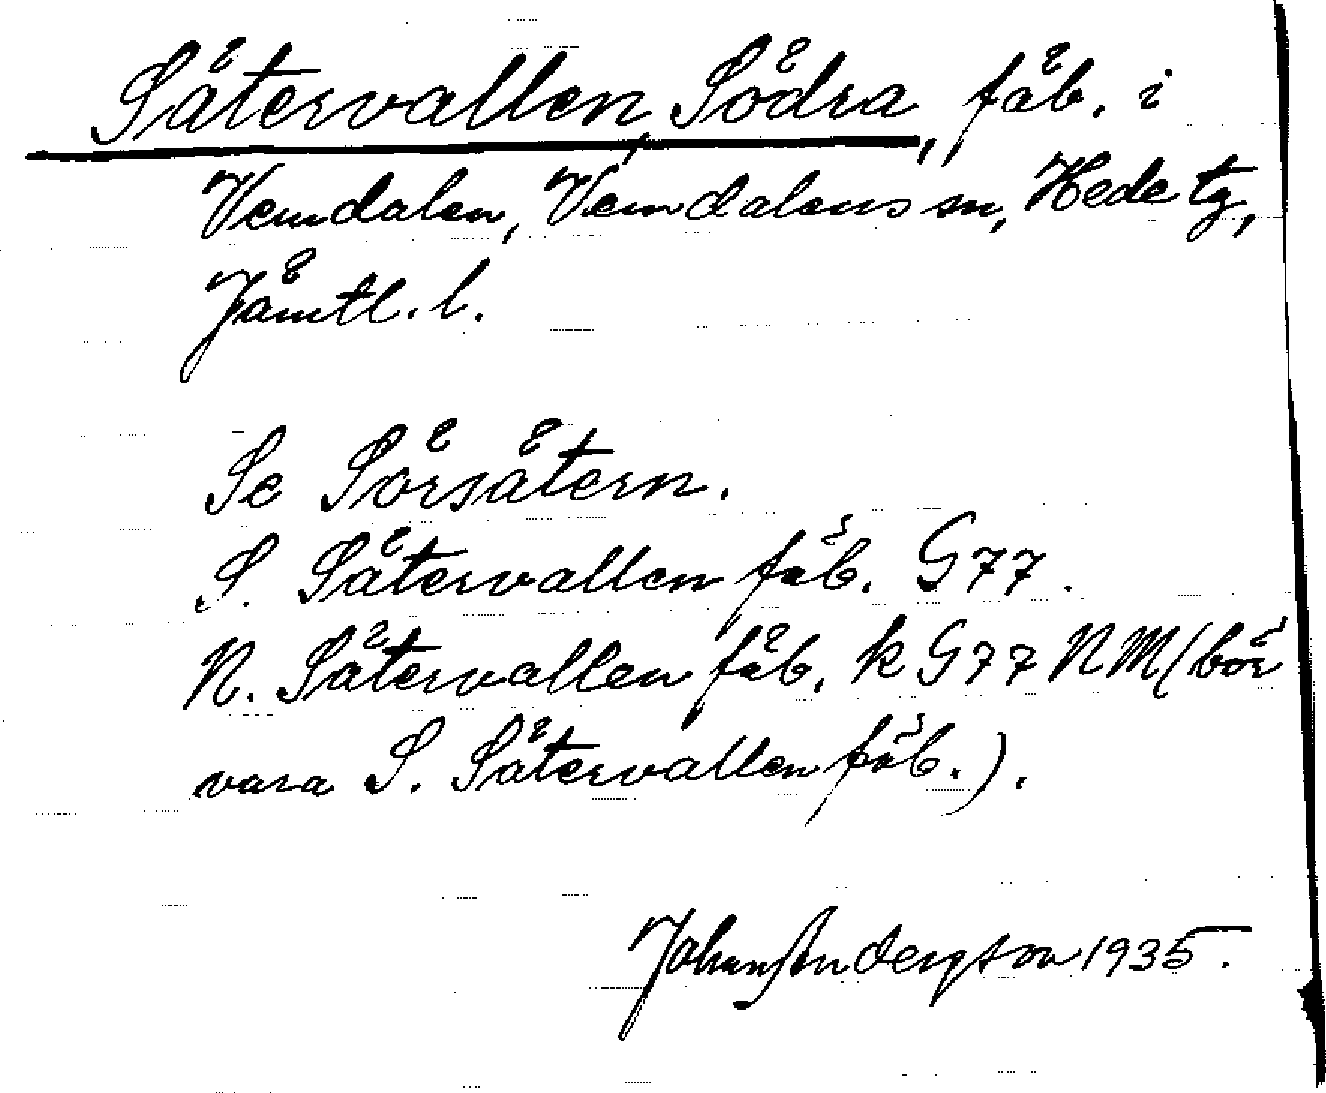 Sätervallen, Södra, fäb. i
Vemdalen, Vemdalens sn, Hede tg,
Jämtl. l.
Se Sörsätern.
S. Sätervallen fäb. G77.
N. Sätervallen fäb. k G77 NM (bör
vara S. Sätervallen fäb.).
Johan Anderson 1935.